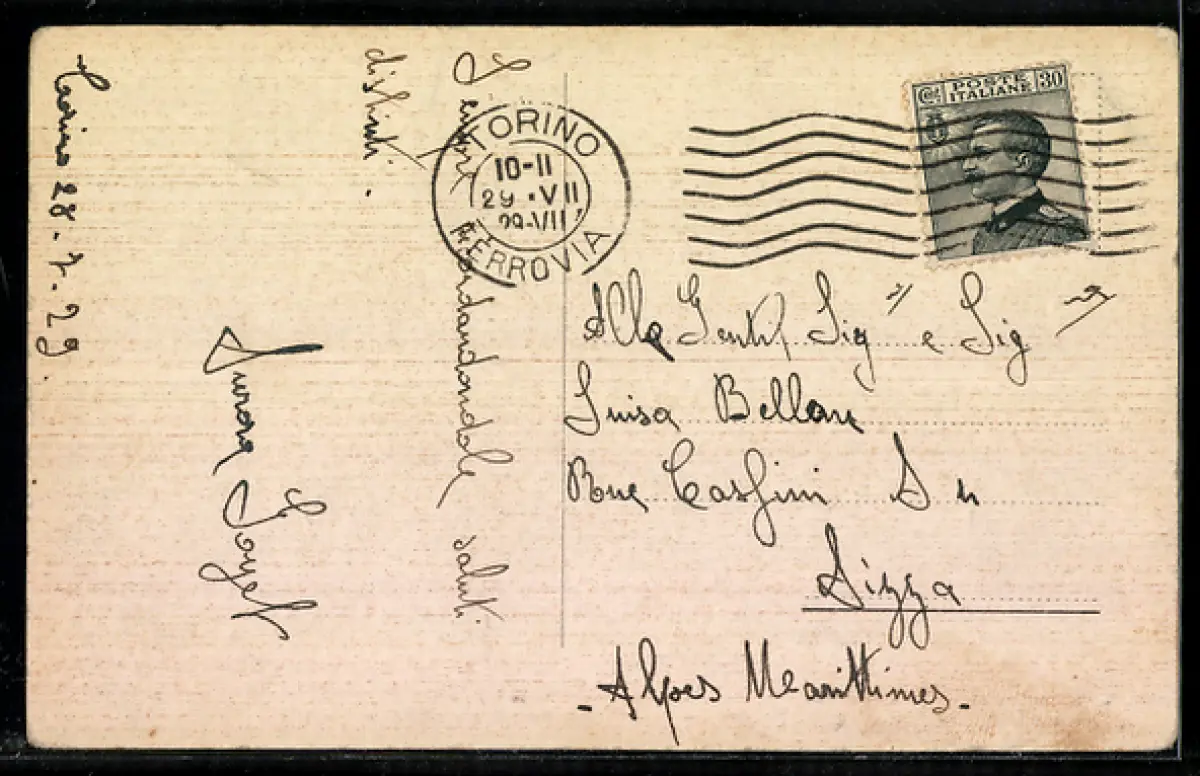 Torino 28-7-29.
Sempre ricordandole saluti
distinti.
TORINO
10-11
29·VII
29·VII
FERROVIA
Cent. POSTE 30
ITALIANE
Alla Gentil Sig e Sig
Luisa Bellone
Rue Cassini
Nizza
- Alpes Marittimes -